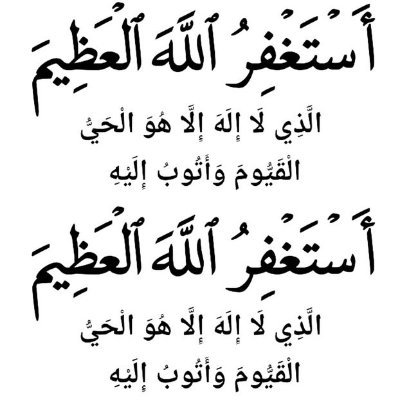 أَسْتَغْفِرُ ٱللَّهَ ٱلْعَظِيمَ
الَّذِي لَا إِلَهَ إِلَّا هُوَ الْحَيُّ
الْقَيُّومَ وَأَتُوبُ إِلَيْهِ
أَسْتَغْفِرُ ٱللَّهَ ٱلْعَظِيمَ
الَّذِي لَا إِلَهَ إِلَّا هُوَ الْحَيُّ
الْقَيُّومَ وَأَتُوبُ إِلَيْهِ